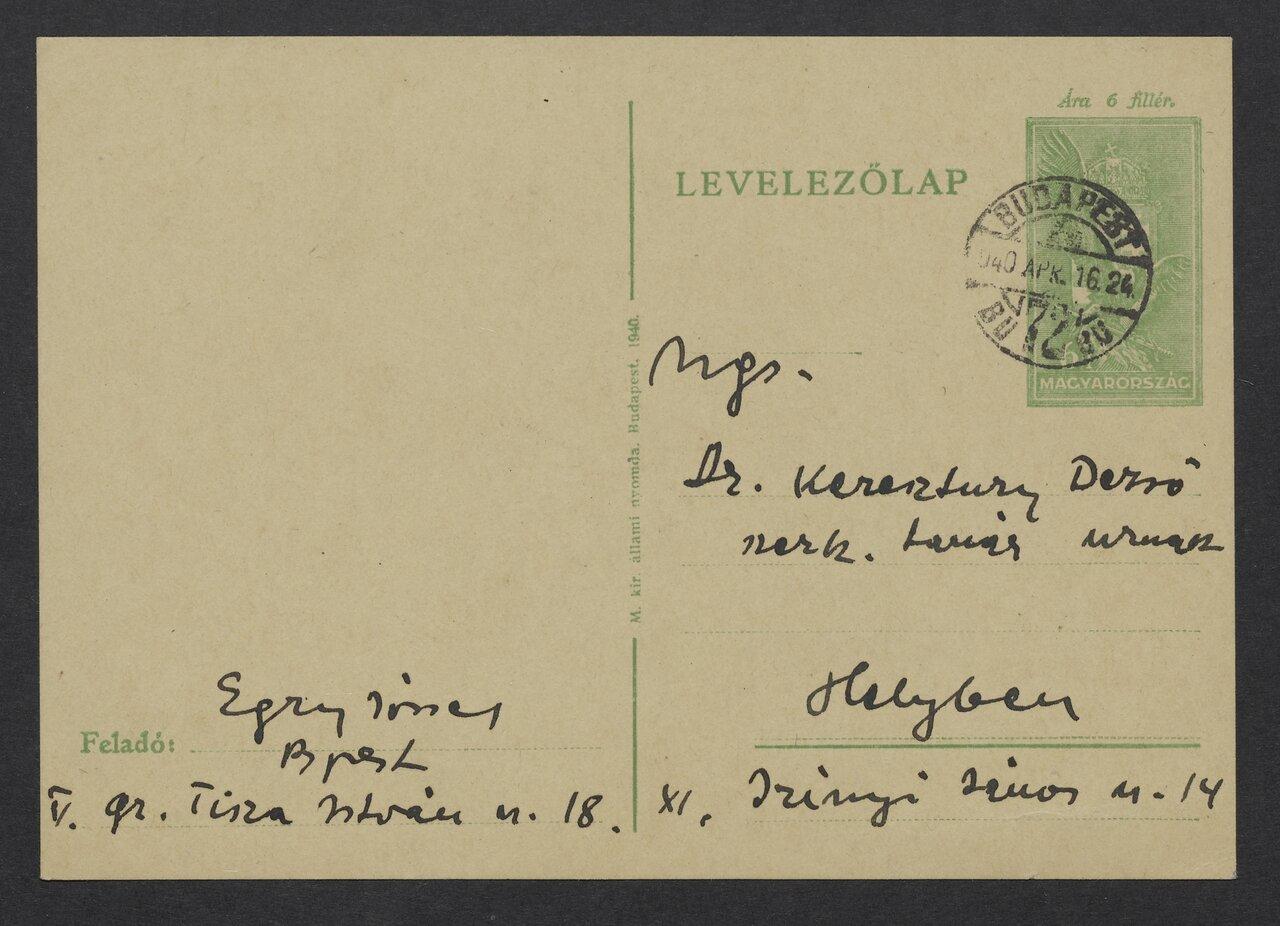 Ára 6 fillér.
LEVELEZŐLAP
BUDAPEST
940 APR. 16. 24
72
MAGYARORSZÁG
M. kir. állami nyomda. Budapest. 1940.
Ngs.
Dr. Keresztury Dezső
szerk. tanár urnak
Helyben
XI. Irinyi János u. 14
Feladó:
Egry József
Bpest
V. gr. Tisza István u. 18.